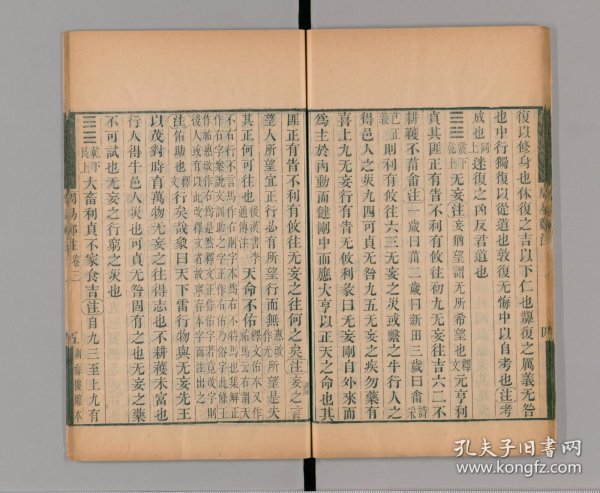 復以脩身也休復之吉以下仁也頻復之厲義无咎
也中行獨復以從道也敦復无悔中以自考也注考
成也上同迷復之凶反君道也
震下乾上无妄注妄猶望謂无所希望也釋文元亨利
貞其匪正有眚不利有攸往初九无妄往吉六二不
耕穫不菑畬注一歲曰菑二歲曰新田三歲曰畬詩
采芑正義則利有攸往六三无妄之災或繫之牛行人之
得邑人之災九四可貞无咎九五无妄之疾勿藥有
喜上九无妄行有眚无攸利彖曰无妄剛自外來而
爲主於內動而健剛中而應大亨以正天之命也其
匪正有眚不利有攸往无妄之往何之矣注妄之言
望人所望宜正行必有所望行而無
其正何可往也後漢書李通傳注天命不佑
注佑助也釋文行矣哉象曰天下雷行物與无妄先王
以茂對時育萬物无妄之往得志也不耕穫未富也
行人得牛邑人災也可貞无咎固有之也无妄之藥
不可試也无妄之行窮之災也
乾下艮上大畜利貞不家食吉注自九三至上九有
周易鄭注
四
周易鄭注卷三
五
湖海樓雕本
孔夫子旧书网
www.kongfz.com